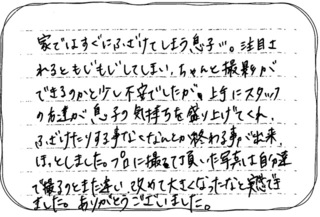 家ではすぐにふざけてしまう息子…。注目さ
れるともじもじしてしまい、ちゃんと撮影が
できるのかと少し不安でしたが、上手にスタッフ
の方達が息子の気持ちを盛り上げてくれ、
ふざけたりする事なくなんとか終わる事が出来、
ほっとしました。プロに撮って頂いた写真は自分達
で撮るのとまた違い、改めて大きくなったなと実感でき
ました。ありがとうございました。